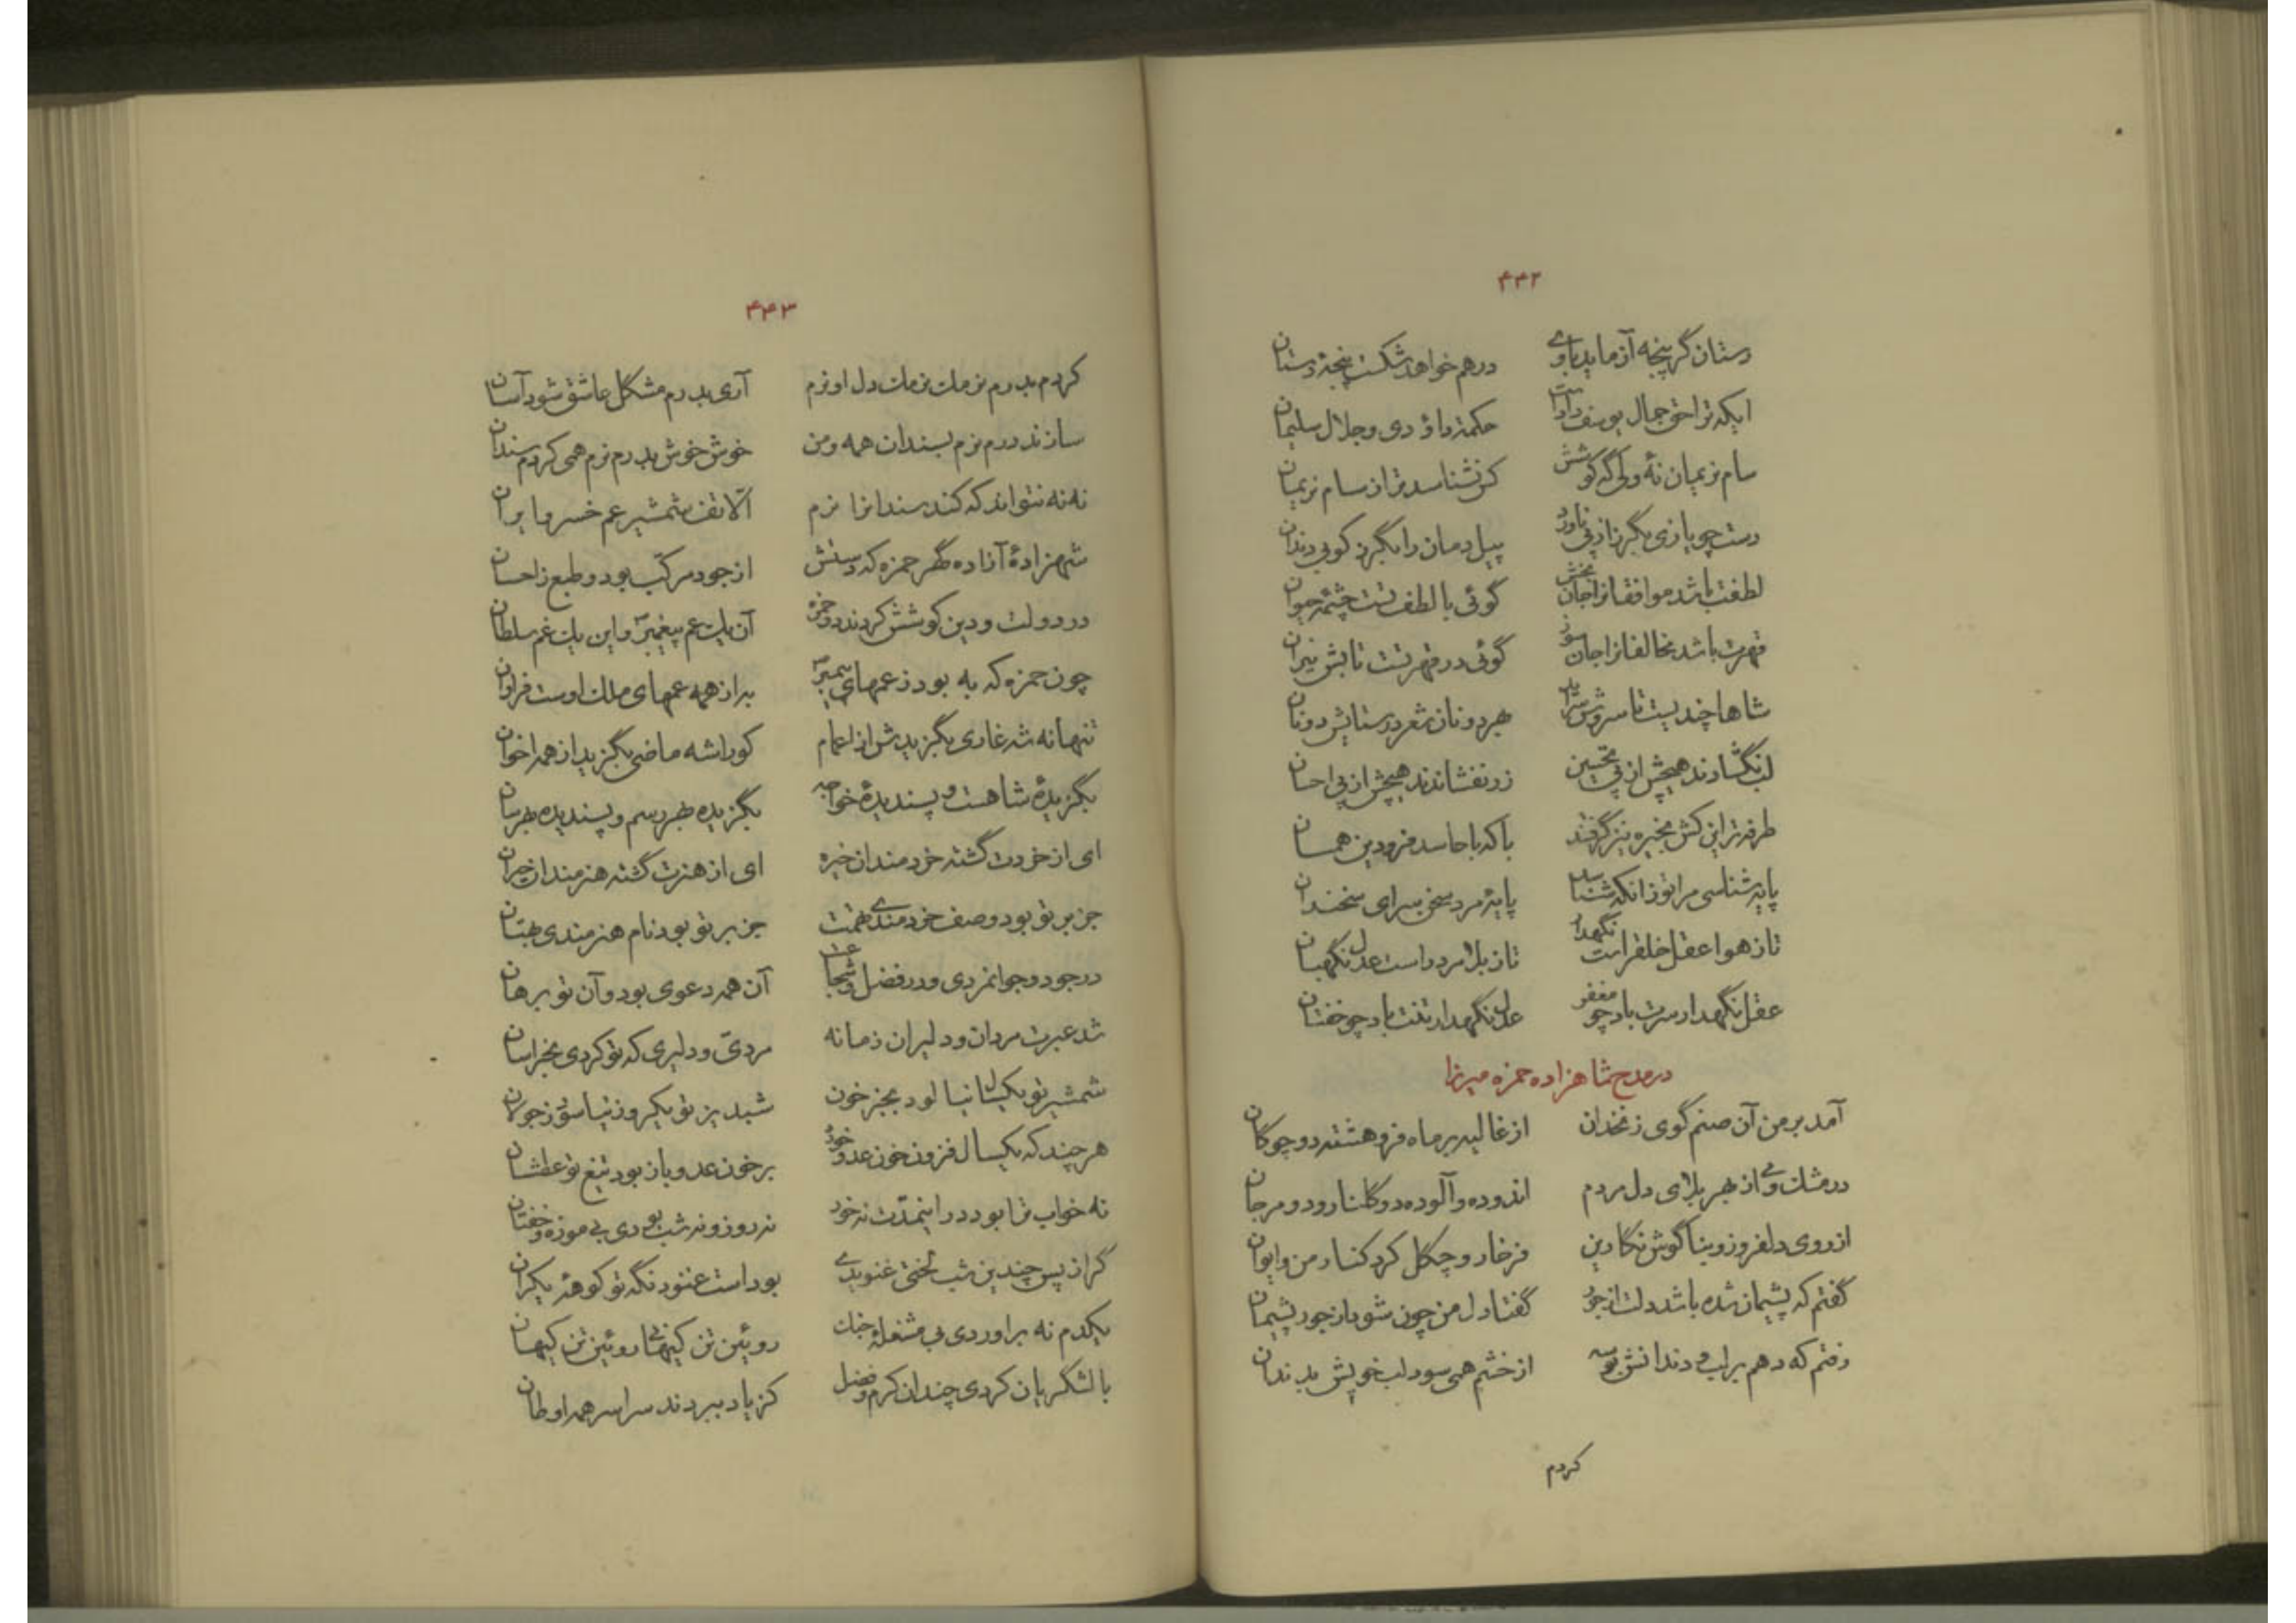 ۴۴۲
دستان گر پنجه آزماید باوی درهم خواهد شکست پنجهٔ دستان
ایکه ترا حق جمال یوسف دادست حکمت داؤدی و جلال سلیمان
سام نریمان نهٔ ولی گه کوشش کس نشناسد ترا ز سام نریمان
دست چو یازی بگرز از پی ناورد پیل دمان را بگرز کوبی دندان
لطفت باشد موافقانرا جان بخش گوئی با لطف تست چشمهٔ حیوان
قهرت باشد مخالفانرا جان سوز گوئی در قهر تست تابش نیران
شاها چندیست تا سروش سراید بهر دو نان شعر در ستایش دونان
لب نگشادند هیچش از پی تحسین زر نفشاندند هیچش از پی احسان
طرفه تر این کش بخیره نیز گرفتند باکه با حاسد فرودین همسان
پایه شناسی مرا تو زانکه شناسد پایهٔ مرد سخن سرای سخندان
تاز هوا عقل خلقراست نگهدار تاز بلا مرد راست عدل نگهبان
عقل نگهدار سرت باد چو مغفر عدل نگهدار تنت باد چو خفتان
در مدح شاهزاده حمزه میرزا
آمد بر من آن صنم گوی زنخدان از غالیه بر ماه فروهشته دو چوگان
در مشک و می از بهر بلای دل مردم اندوده و آلوده دو گلنار و دو مرجان
از روی دلفروز و بناگوش نگارین فرخار و چگل کرد کنار من و ایوان
گفتم که پشیمان شده باشد دلت از جور گفتا دل من چون شود از جور پشیمان
رفتم که دهم بر لب و دندانش بوسه از خشم همی سود لب خویش بدندان
کردم
۴۴۳
کردم بدرم نرمک نرمک دل او نرم آری بدرم مشکل عاشق شود آسان
سازند درم نرم بسندان همه و من خوش خوش بدرم نرم همی کردم سندان
نه نه نتواند که کند سندانرا نرم الّا تف شمشیر عم خسرو ایران
شهزادهٔ آزاده گهر حمزه که دستش از جود مرکّب بود و طبع ز احسان
در دولت و دین کوشش کردند دو حمزه آن یک عم پیغمبر و این یک عم سلطان
چون حمزه که به بود ز عمهای پیمبر به از همه عمهای ملک اوست فراوان
تنها نه شه غازی بگزیدش از اعمام کو را شه ماضی بگزید از همه اخوان
بگزیدهٔ شاهست و پسندیدهٔ خواجه بگزیده بهر رسم و پسندیده بهر سان
ای از خردت گشته خردمندان خیره ای از هنرت گشته هنرمندان حیران
جز بر تو بود وصف خردمندی تهمت جز بر تو بود نام هنرمندی بهتان
در جود و جوانمردی و در فضل و شجاعت آن همه دعوی بود و آن تو برهان
شد عبرت مردان و دلیران زمانه مردیّ و دلیری که تو کردی بخراسان
شمشیر تو یکسال نیالود بجز خون شبدیز تو یکروز نیاسود ز جولان
هر چند که یکسال فزون خون عدو خورد بر خون عدو باز بود تیغ تو عطشان
نه خواب ترا بود در اینمدّت نه خورد نه روز و نه شب بودی بی موزه و خفتان
گر از پس چندین شب لختی غنویدی بود است غنود نگه تو کوههٔ یکران
یکدم نه براوردی بی مشغلهٔ جنگ روئین تن کیهانی روئین تن کیهان
با لشگریان کردی چندان کرم و فضل کز یاد ببردند سراسر همه اوطان